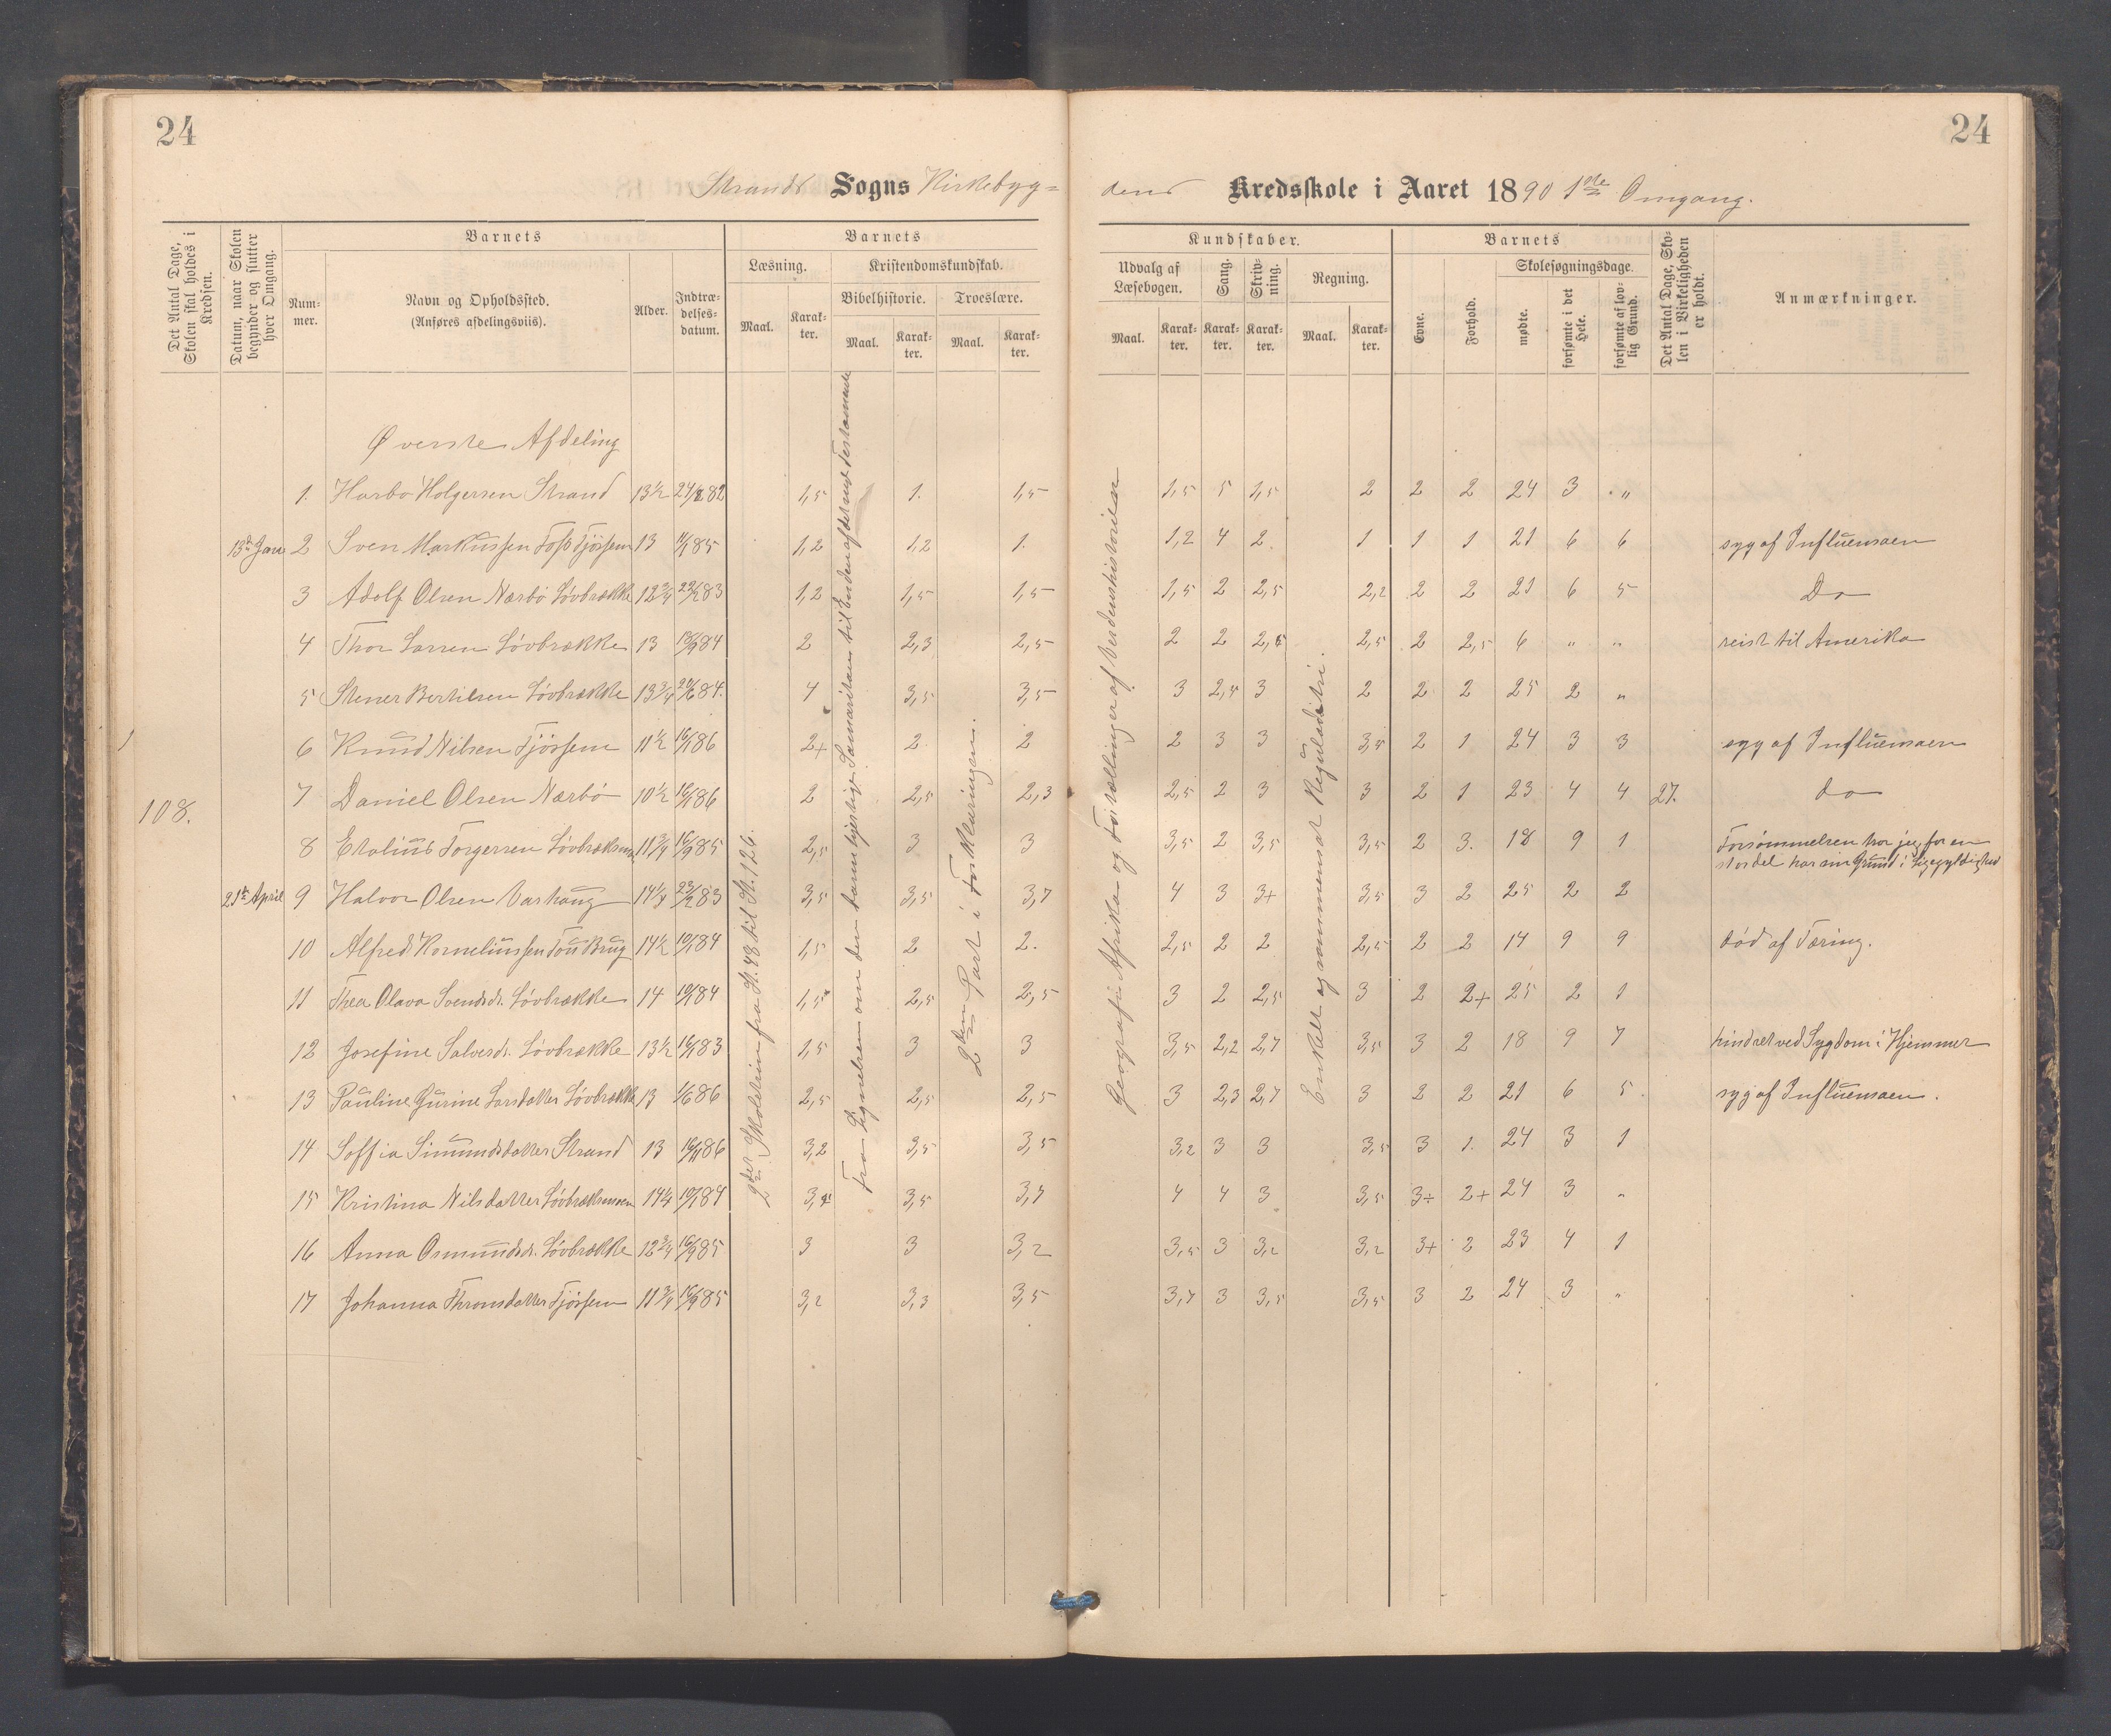 24
24
Strands Sogns Kirkebyg=
dens Kredsskole i Aaret 1890 1ste Omgang.
Det Antal Dage, Skolen skal holdes i Kredsen.
Datum, naar Skolen begynder og slutter hver Omgang.
Barnets
Nummer.
Navn og Opholdssted.
(Anføres afdelingsviis).
Alder.
Indtrædelsesdatum.
Barnets
Læsning.
Maal.
Karakter.
Kristendomskundskab.
Bibelhistorie.
Maal.
Karakter.
Troeslære.
Maal.
Karakter.
Kundskaber.
Udvalg af Læsebogen.
Maal.
Karakter.
Sang.
Karakter.
Skrivning.
Karakter.
Regning.
Maal.
Karakter.
Barnets
Evne.
Forhold.
Skolesøgningsdage.
mødte.
forsømte i det Hele.
forsømte af lovlig Grund.
Det Antal Dage, Skolen i Virkeligheden er holdt.
Anmærkninger.
Øverste Afdeling
108.
13de Jan
21de April
2der Skoletrin fra St. 48 til St. 126.
Fra Lignelsen om den barmhjertige Samaritan til Enden af det nye Testamente
2den Part i Forklaringen.
Geografi: Afrika og Fortællinger af Verdenshistorien
Enkelt og sammensat Reguladetri.
27.
1. Harbo Holgersen Strand 13½ 82 1,5 1. 1,5 1,5 5 1,5 2 2 2 24 3 "
2 Sven Markussen Foss Tjössem 13 85 1,2 1,2 1. 1,2 4 2 1 1 1 21 6 6 syg af Influensaen
3 Adolf Olsen Nærbö Lövbrække 12¾ 83 1,2 1,5 1,5 1,5 2 2,5 2,2 2 2 21 6 5 Do
4 Thor Larsen Lövbrække 13 84 2 2,3 2,5 2 2 2,5 2,5 2 2,5 6 " " reist til Amerika
5 Stener Bertilsen Lövbrække 13¾ 84. 4 3,5 3,5 3 2,5 3 2 2 2 25 2 "
6 Knud Nilsen Tjössem 11½ 16/1 86 2+ 2 2 2 3 3 3,5 2 1 24 3 3 syg af Influensaen
7 Daniel Olsen Nærbö 10½ 16/1 86 2 2,5 2,3 2,5 2 3 3 2 1 23 4 4 do
8 Torgersen 11¾ 16/9 85 2,5 3 3 3,5 2 3,5 3,5 2 3. 18 9 1 Forsømmelsen tror jeg for en
stor del har sin Grund i Ligegyldighed
9 Halvor Olsen Varhaug 14¼ 83 3,5 3,5 3,7 4 3 3+ 3,5 3 2 25 2 2
10 Alfred Korneliussen Tou Brug 14½ 10/1 84 1,5 2 2. 2,5 2 2 2,5 2 2 14 9 9 död af Tæring.
11 Thea Olava Svendsdr. Lövbrække 14 10/1 84 1,5 2,5 2,5 3 2 2,5 3 2 2+ 25 2 1
12 Josefine Salvesdr. Lövbrække 13½ 16/1 83 1,5 3 3 3,5 2,2 2,7 3,5 3 2 18 9 7 hindret ved Sygdom i Hjemmet
13 Pauline Gurine Larsdatter Lövbrække 13 1/6 86 2,5 2,5 2,5 3 2,3 2,7 3 2 2 21 6 5 syg af Influensaen.
14 Soffia Simundsdatter Strand 13 86 3,2 3,5 3,5 3,2 3 3 3,5 3 1. 24 3 1
15 Kristina Nilsdatter 14¼ 10/1 84 3,5 3,7 4 4 3 3,5 3÷ 2+ 24 3 "
16 Anna Osmundsdr. Lövbrække 12¾ 16/9 85 3 3 3,2 3,5 3 3,2 3,2 3+ 2 23 4 1
17 Johanna Thronsdatter Tjössem 11¾ 16/9 85 3,2 3,3 3,5 3,7 3 3,5 3,5 3 2 24 3 "